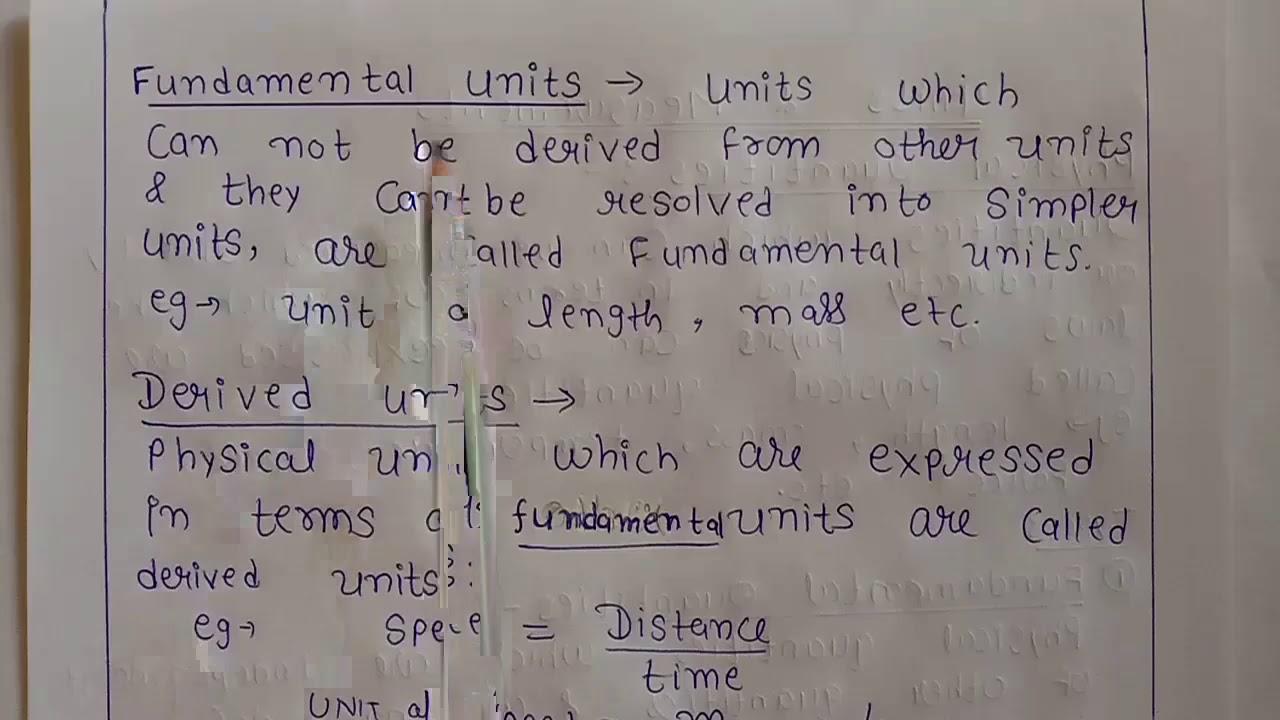 Fundamental units → units which
Can not be derived from other units
& they Can't be resolved into Simpler
units, are called Fundamental units.
eg→ unit length, mass etc.
Derived units →
Physical which are expressed
in terms fundamental units are Called
derived units
eg→ = Distance
time
UNIT